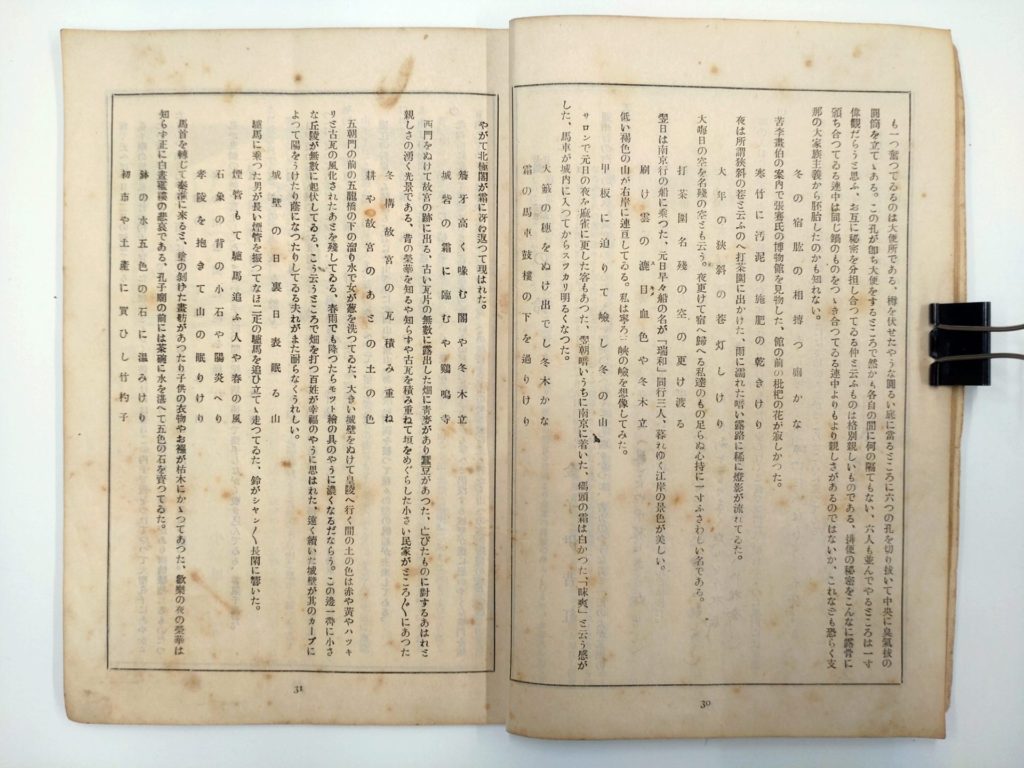 も一つ奮つてゐるのは大便所である、樽を伏せたやうな圓るい庇に當るところに六つの孔を切り拔いて中央に臭氣拔の
圓筒を立てゝある。この孔が卽ち大便をするところで然かも各自の間に何の隔てもない、六人も並んでやるところは一寸
偉觀だらうと思ふ、お互に秘密を分擔し合つてゐる仲と云ふものは格別親しいものである、排便の秘密をこんなに露骨に
頒ち合つてゐる連中は同じ鍋のものをつゝき合つてゐる連中よりもより親しさがあるのではないか、これなども恐らく支
那の大家族主義から胚胎したのかも知れない。
冬の宿肱の相摶つ廁かな
苦李畫伯の案内で張謇氏の博物館を見物した、館の前の枇杷の花が寂しかつた。
寒竹に汚泥の施肥の乾きけり
夜は所謂狹斜の巷と云ふのへ打茶圍に出かけた、雨に濡れた暗い露路に稀に燈影が流れてゐた。
大年の狹斜の巷灯しけり
大晦日の空を名殘の空とも云う。夜更けて宿へ歸へる私達のもの足らぬ心持に一寸ふさわしい名である。
打茶圍名殘の空の更け渡る
翌日は南京行の船に乘つた、元日早々船の名が「瑞和」同行三人、暮れゆく江岸の景色が美しい。
刷け雲の漉目血色や冬木立
低い褐色の山が右岸に連亘してゐる。私は寧ろ三峽の嶮を想像してみた。
甲板に迫りて嶮し冬の山
サロンで元日の夜を麻雀に更した客もあつた、翌朝暗いうちに南京に着いた、碼頭の霜は白かつた、「昧爽」と云う感が
した、馬車が城内に入つてからスツカリ明るくなつた。
大籔の穗をぬけ出でし冬木かな
霜の馬車鼓樓の下を過りけり
30
やがて北極閣が霜に冴ね返つて現はれた。
簷牙高く喙む閣や冬木立
城砦の霜に臨むや鷄鳴寺
西門をぬけて故宮の跡に出る、古い瓦片の無數に露出した畑に靑麥があり蠶豆があつた、亡びたものに對するあはれと
親しさの湧く光景である、昔の榮華を知るや知らずや古瓦を積み重ねて垣をめぐらした小さい民家がところ〲にあつた
冬構故宮の瓦積み重ね
耕や故宮のあとの土の色
五朝門の前の五龍橋の下の溜り水で女が葱を洗つてゐた、大きい城壁をぬけて皇陵へ行く間の土の色は赤や黃やハツキ
リと古瓦の風化されたあとを殘してゐる、春雨でも降つたらモツト繪の具のやうに濃くなるだならう。この邊一帶に小さ
な丘陵が無數に起伏してゐる、こう云うところで畑を打つ百姓が幸福のやうに思はれた、遠く續いた城壁が其のカーブに
よつて陽をうけたり蔭になつたりしてゐる夫れがまた耐らなくうれしい。
城壁の日裏日表眠る山
驢馬に乘つた男が長い煙管を振つてなほ二疋の驢馬を追ひ立てゝ走つてゐた、鈴がシヤン〱長閑に響いた。
煙管もて驢馬追ふ人や春の風
石象の背の小石や陽炎へり
孝陵を抱きて山の眠りけり
馬首を轉じて秦淮に來ると、塗の剝げた畫舫があつたり子供の衣物やお襁が枯木にかゝつてあつた、歡樂の夜の榮華は
知らず正に白晝曝穢の悲哀である、孔子廟の前には茶碗に水を湛へて五色の石を賣つてゐた。
鉢の水五色の石に溫みけり
初市や土產に買ひし竹杓子
31